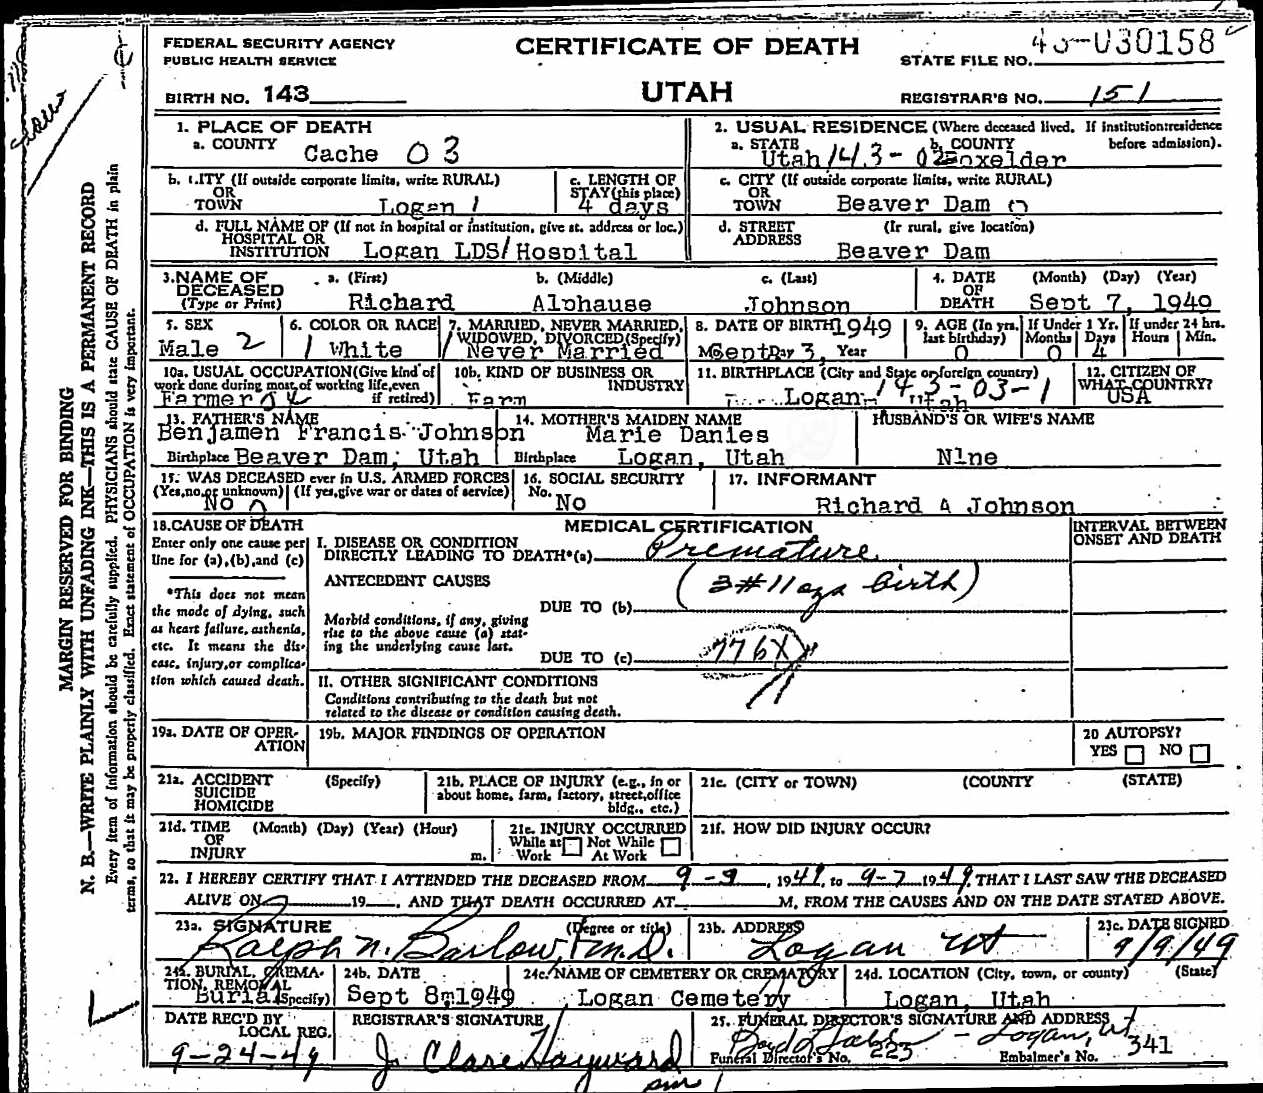 FEDERAL SECURITY AGENCY
PUBLIC HEALTH SERVICE
CERTIFICATE OF DEATH
STATE FILE NO. 030158
BIRTH NO. 143
UTAH
REGISTRAR'S NO. 151
MARGIN RESERVED FOR BINDING
N. B.—WRITE PLAINLY WITH UNFADING INK—THIS IS A PERMANENT RECORD
Every item of information should be carefully supplied. PHYSICIANS should state CAUSE OF DEATH in plain
terms, so that it may be properly classified. Exact statement of OCCUPATION is very important.
1. PLACE OF DEATH
a. COUNTY
Cache 03
2. USUAL RESIDENCE (Where deceased lived. If institution:residence
before admission).
a. STATE b. COUNTY
Utah 143-02 Boxelder
b. CITY (If outside corporate limits, write RURAL)
OR
TOWN Logan 1
c. LENGTH OF
STAY (this place)
4 days
c. CITY (If outside corporate limits, write RURAL)
OR
TOWN Beaver Dam 0
d. FULL NAME OF (If not in hospital or institution, give st. address or loc.)
HOSPITAL OR
INSTITUTION Logan LDS/Hospital
d. STREET (If rural, give location)
ADDRESS Beaver Dam
3. NAME OF DECEASED (Type or Print)
a. (First) b. (Middle) c. (Last)
Richard Alphause Johnson
4. DATE OF DEATH (Month) (Day) (Year)
Sept 7, 1949
5. SEX
Male 2
6. COLOR OR RACE
1 White
7. MARRIED, NEVER MARRIED,
WIDOWED, DIVORCED(Specify)
Never Married
8. DATE OF BIRTH 1949
Sept Day 3, Year
9. AGE (In yrs. last birthday)
0
If Under 1 Yr.
Months Days
0 4
If under 24 hrs.
Hours Min.
10a. USUAL OCCUPATION(Give kind of
work done during most of working life, even
if retired)
Farmer
10b. KIND OF BUSINESS OR
INDUSTRY
Farm
11. BIRTHPLACE (City and State or foreign country)
143-03-1
Logan, Utah
12. CITIZEN OF
WHAT COUNTRY?
USA
13. FATHER'S NAME
Benjamen Francis Johnson
Birthplace Beaver Dam, Utah
14. MOTHER'S MAIDEN NAME
Marie Danies
Birthplace Logan, Utah
HUSBAND'S OR WIFE'S NAME
N1ne
15. WAS DECEASED ever in U.S. ARMED FORCES
(Yes, no, or unknown) (If yes, give war or dates of service)
No 0
16. SOCIAL SECURITY
No.
No
17. INFORMANT
Richard A Johnson
18. CAUSE OF DEATH
Enter only one cause per
line for (a), (b), and (c)
*This does not mean
the mode of dying, such
as heart failure, asthenia,
etc. It means the dis-
ease, injury, or complica-
tion which caused death.
MEDICAL CERTIFICATION
INTERVAL BETWEEN
ONSET AND DEATH
I. DISEASE OR CONDITION
DIRECTLY LEADING TO DEATH*(a) Premature
ANTECEDENT CAUSES
(3# 11 ozs birth)
DUE TO (b)
Morbid conditions, if any, giving
rise to the above cause (a) stat-
ing the underlying cause last.
DUE TO (c) 776X
II. OTHER SIGNIFICANT CONDITIONS
Conditions contributing to the death but not
related to the disease or condition causing death.
19a. DATE OF OPER-
ATION
19b. MAJOR FINDINGS OF OPERATION
20 AUTOPSY?
YES NO
21a. ACCIDENT (Specify)
SUICIDE
HOMICIDE
21b. PLACE OF INJURY (e.g., in or
about home, farm, factory, street, office
bldg., etc.)
21c. (CITY or TOWN) (COUNTY) (STATE)
21d. TIME (Month) (Day) (Year) (Hour)
OF
INJURY m.
21e. INJURY OCCURRED
While at Not While
Work At Work
21f. HOW DID INJURY OCCUR?
22. I HEREBY CERTIFY THAT I ATTENDED THE DECEASED FROM 9-9, 1949, to 9-7 1949, THAT I LAST SAW THE DECEASED
ALIVE ON 19, AND THAT DEATH OCCURRED AT M, FROM THE CAUSES AND ON THE DATE STATED ABOVE.
23a. SIGNATURE (Degree or title)
Ralph N. Barlow, M.D.
23b. ADDRESS
Logan Ut
23c. DATE SIGNED
9/9/49
24a. BURIAL, CREMA-
TION, REMOVAL
Burial (Specify)
24b. DATE
Sept 8, 1949
24c. NAME OF CEMETERY OR CREMATORY
Logan Cemetery
24d. LOCATION (City, town, or county) (State)
Logan, Utah
DATE REC'D BY
LOCAL REG.
9-24-49
REGISTRAR'S SIGNATURE
J. Clare Hayward
25. FUNERAL DIRECTOR'S SIGNATURE AND ADDRESS
Logan, Ut
Funeral Director's No. 223
Embalmer's No. 341